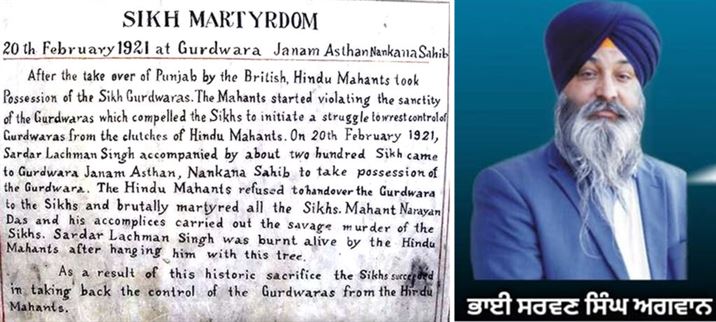 SIKH MARTYRDOM
20th February 1921 at Gurdwara Janam Asthan Nankana Sahib
After the take over of Punjab by the British, Hindu Mahants took
Possession of the Sikh Gurdwaras. The Mahants started violating the sanctity
of the Gurdwaras which compelled the Sikhs to initiate a struggle to wrest control of
Gurdwaras from the clutches of Hindu Mahants. On 20th February 1921,
Sardar Lachman Singh accompanied by about two hundred Sikh came
to Gurdwara Janam Asthan, Nankana Sahib to take possession of
the Gurdwara. The Hindu Mahants refused to handover the Gurdwara
to the Sikhs and brutally martyred all the Sikhs. Mahant Narayan
Das and his accomplices carried out the savage murder of the
Sikhs. Sardar Lachman Singh was burnt alive by the Hindu
Mahants after hanging him with this tree.
As a result of this historic sacrifice the Sikhs succeeded
in taking back the control of the Gurdwaras from the Hindu
Mahants.
ਭਾਈ ਸਰਵਣ ਸਿੰਘ ਅਗਵਾਨ